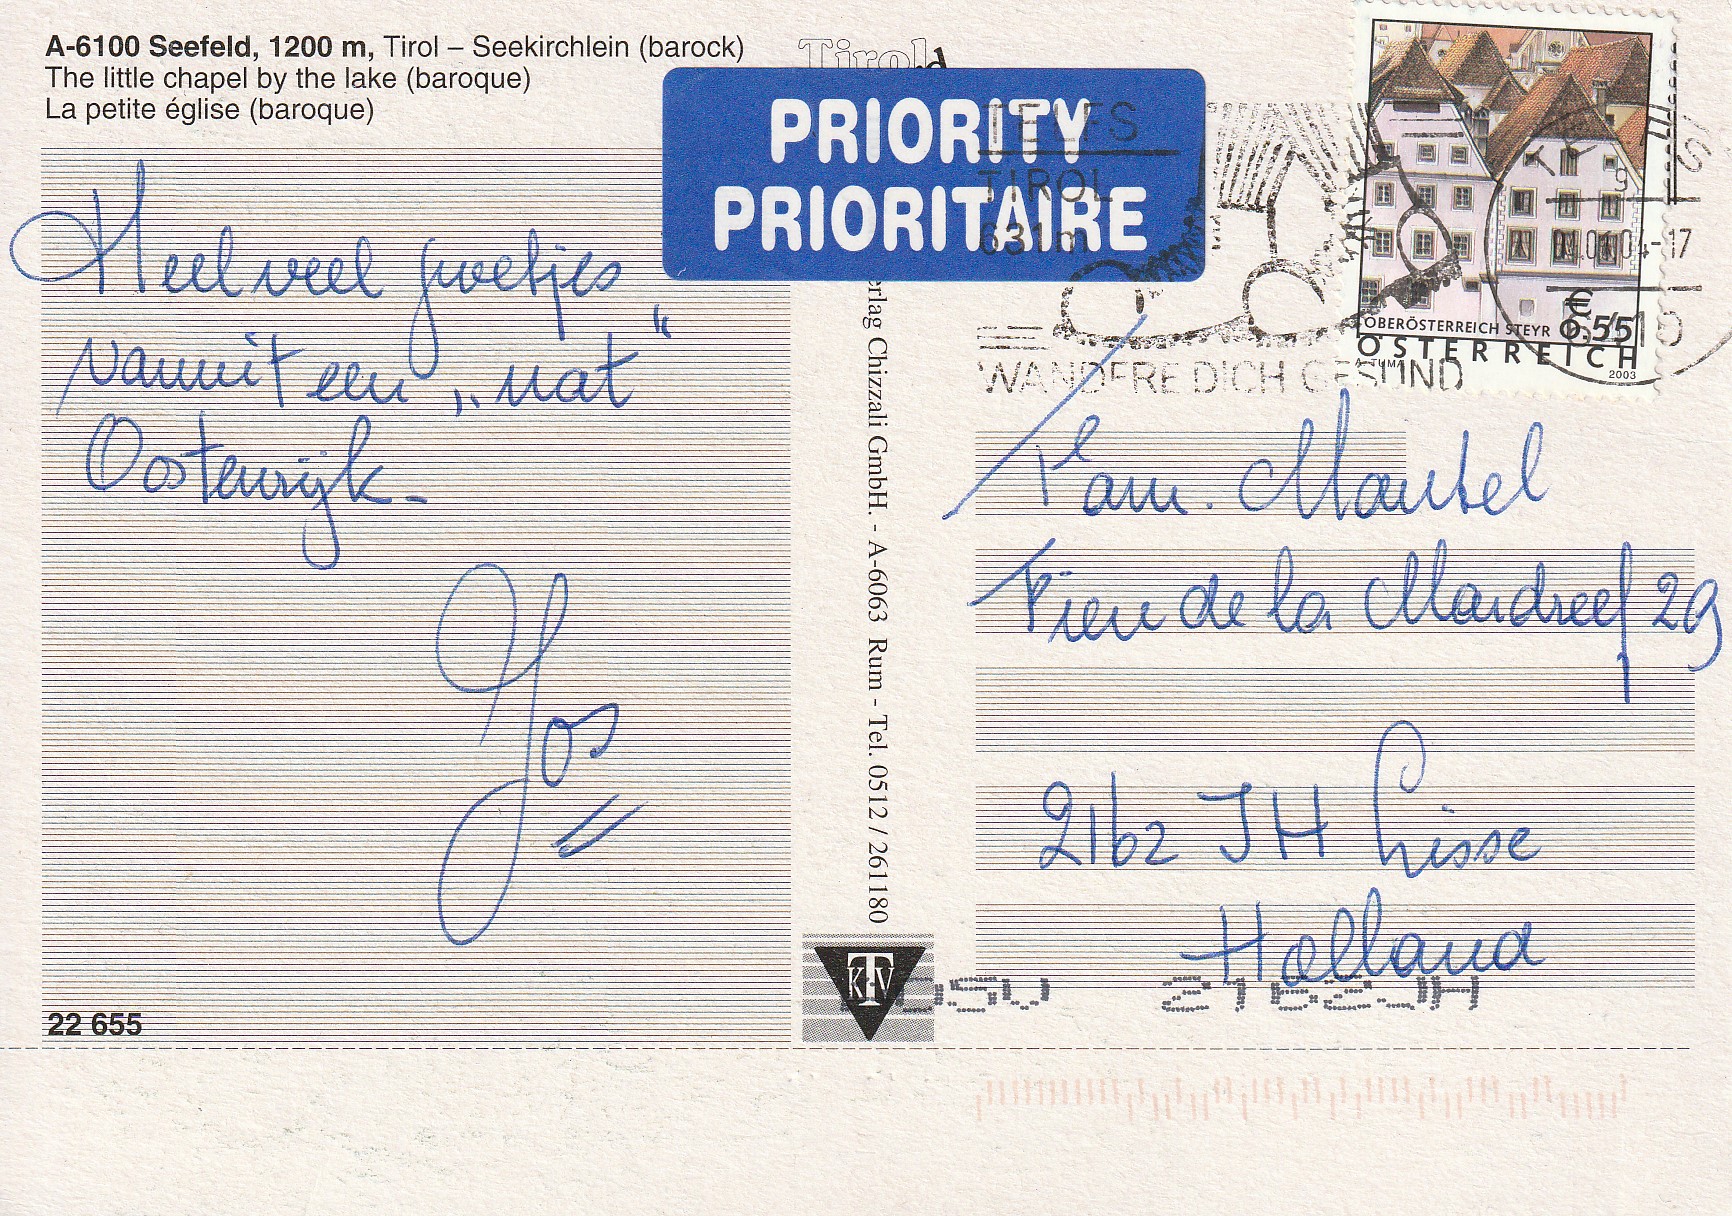 A-6100 Seefeld, 1200 m, Tirol – Seekirchlein (barock)
The little chapel by the lake (baroque)
La petite église (baroque)
Heel veel groetjes
vanuit een „nat"
Oostenrijk-
Jos
22 655
Tirol
PRIORITY
PRIORITAIRE
TELFS
TIROL
631m
WANDERE DICH GESUND
OBERÖSTERREICH STEYR
€ 0,55
ÖSTERREICH
A. TUMA
2003
erlag Chizzali GmbH. - A-6063 Rum - Tel. 0512 / 261180
KTV
Fam. Mantel
Fien de la Mardreef 29
2162 JH Lisse
Holland
2162JH